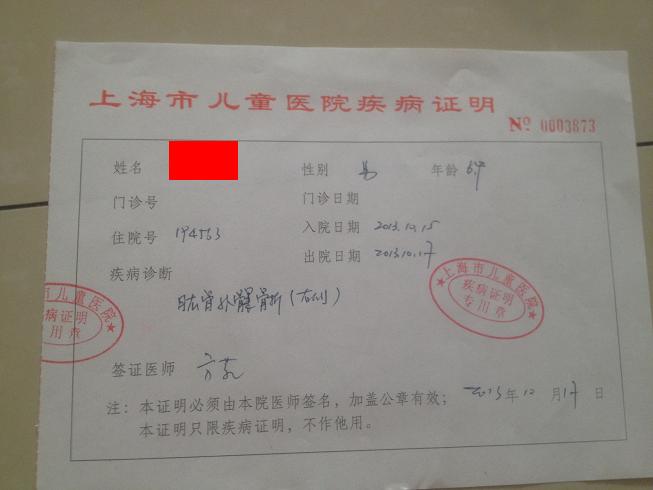 上海市儿童医院疾病证明
№ 0003873
姓名 性别 男 年龄 6岁
门诊号 门诊日期
住院号 194563 入院日期 2013.10.15
出院日期 2013.10.17
疾病诊断
肱骨外髁骨折(右侧)
上海市儿童医院
疾病证明
专用章
市儿童医院
病证明
用章
签证医师 方
注:本证明必须由本院医师签名,加盖公章有效; 2013年10月17日
本证明只限疾病证明,不作他用。